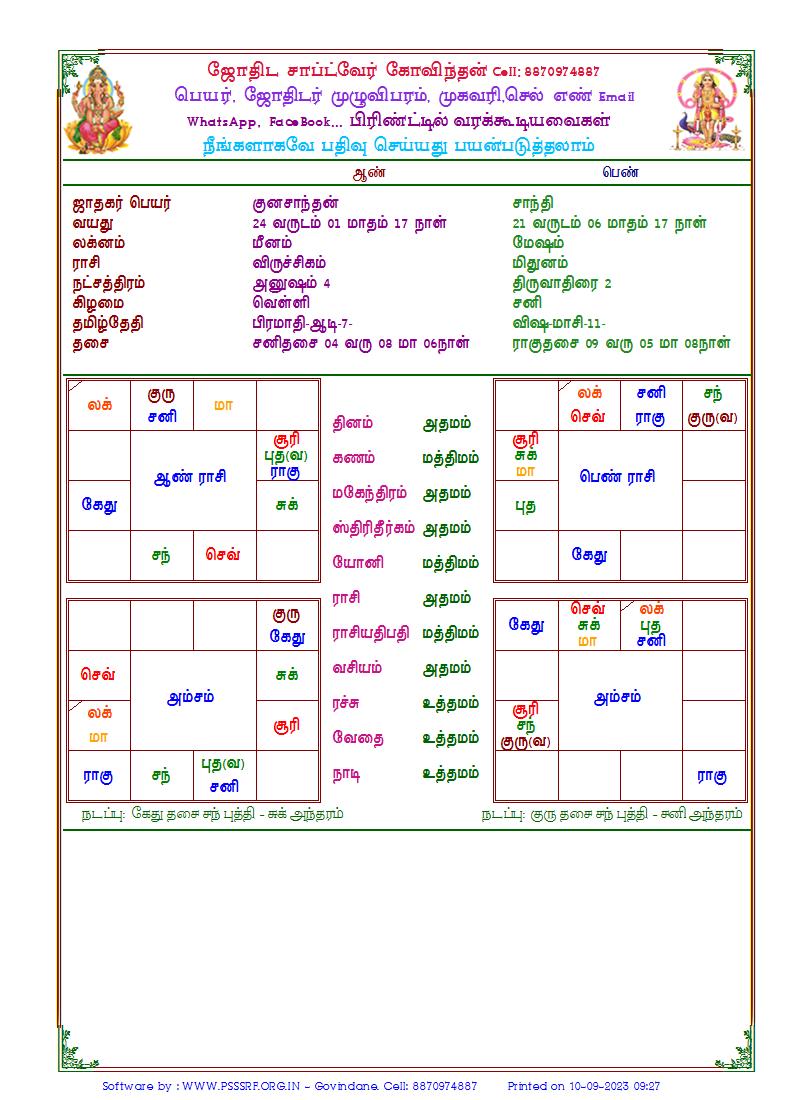 ஜோதிட சாப்ட்வேர் கோவிந்தன் Cell: 8870974887
பெயர், ஜோதிடர் முழுவிபரம், முகவரி,செல் எண் Email
WhatsApp, FaceBook... பிரிண்ட்டில் வரக்கூடியவைகள்
நீங்களாகவே பதிவு செய்யது பயன்படுத்தலாம்
ஆண் பெண்
ஜாதகர் பெயர் குனசாந்தன் சாந்தி
வயது 24 வருடம் 01 மாதம் 17 நாள் 21 வருடம் 06 மாதம் 17 நாள்
லக்னம் மீனம் மேஷம்
ராசி விருச்சிகம் மிதுனம்
நட்சத்திரம் அனுஷம் 4 திருவாதிரை 2
கிழமை வெள்ளி சனி
தமிழ்தேதி பிரமாதி-ஆடி-7- விஷு-மாசி-11-
தசை சனிதசை 04 வரு 08 மா 06நாள் ராகுதசை 09 வரு 05 மா 08நாள்
லக்
குரு
சனி
மா
சூரி
புத(வ)
ராகு
ஆண் ராசி
கேது
சுக்
சந்
செவ்
தினம் அதமம்
கணம் மத்திமம்
மகேந்திரம் அதமம்
ஸ்திரிதீர்கம் அதமம்
யோனி மத்திமம்
ராசி அதமம்
ராசியதிபதி மத்திமம்
வசியம் அதமம்
ரச்சு உத்தமம்
வேதை உத்தமம்
நாடி உத்தமம்
லக்
செவ்
சனி
ராகு
சந்
குரு(வ)
சூரி
சுக்
மா
பெண் ராசி
புத
கேது
குரு
கேது
செவ்
அம்சம்
சுக்
லக்
மா
சூரி
ராகு
சந்
புத(வ)
சனி
கேது
செவ்
சுக்
மா
லக்
புத
சனி
அம்சம்
சூரி
சந்
குரு(வ)
ராகு
நடப்பு: கேது தசை சந் புத்தி - சுக் அந்தரம் நடப்பு: குரு தசை சந் புத்தி - சனி அந்தரம்
Software by : WWW.PSSSRF.ORG.IN - Govindane. Cell: 8870974887 Printed on 10-09-2023 09:27